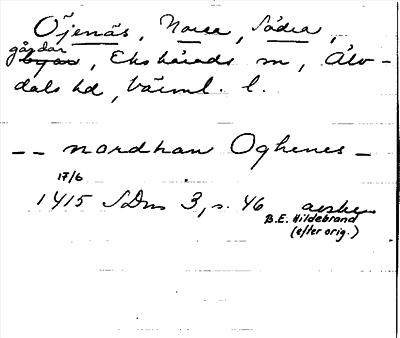 Öjenäs, Norra, Södra,
gårdar
byar, Ekshärads sn, Älv-
dals hd, Värml. l.
-- nordhan Oghenes -
17/6
1415 SDns 3, s. 46 avskr
B.E. Hildebrand
(efter orig.)